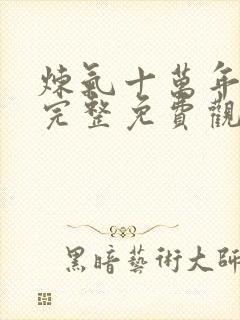 煉氣十萬年
完整免費觀
黑暗藝術大師